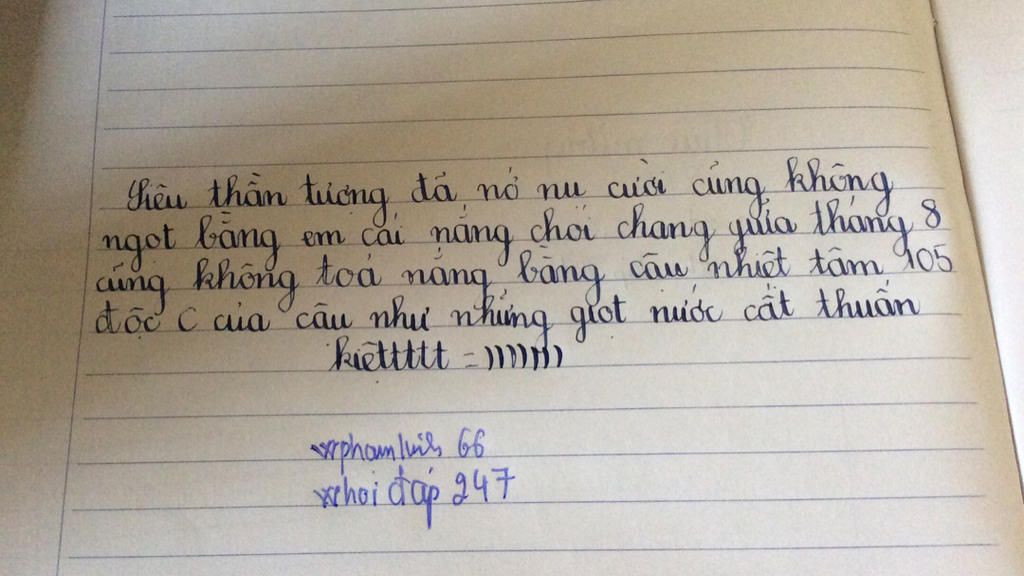 Siêu thần tượng đá, nở nu cười cúng không
ngot bằng em cái nắng chói chang giữa tháng 8
cúng không toả nắng bằng câu nhiệt tâm 105
độc C của câu như những giot nước cất thuần
kiêttttt =)))))))
phamluis 66
hoi đáp 247